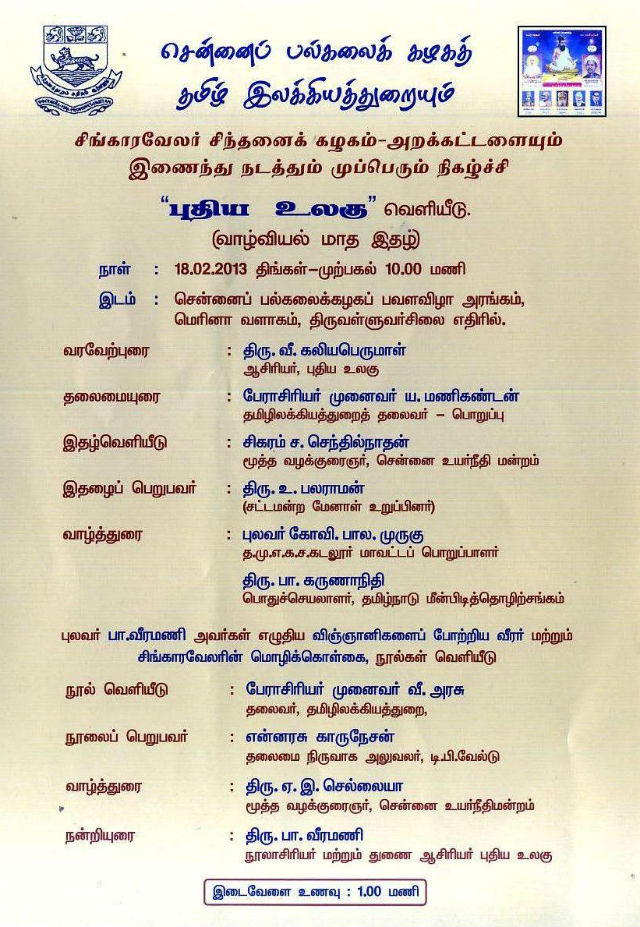 சென்னைப் பல்கலைக் கழகத்
தமிழ் இலக்கியத்துறையும்
சிங்காரவேலர் சிந்தனைக் கழகம்-அறக்கட்டளையும்
இணைந்து நடத்தும் முப்பெரும் நிகழ்ச்சி
"புதிய உலகு" வெளியீடு.
(வாழ்வியல் மாத இதழ்)
நாள் : 18.02.2013 திங்கள்-முற்பகல் 10.00 மணி
இடம் : சென்னைப் பல்கலைக்கழகப் பவளவிழா அரங்கம்,
மெரினா வளாகம், திருவள்ளுவர்சிலை எதிரில்.
வரவேற்புரை : திரு. வீ. கலியபெருமாள்
ஆசிரியர், புதிய உலகு
தலைமையுரை : பேராசிரியர் முனைவர் ய. மணிகண்டன்
தமிழிலக்கியத்துறைத் தலைவர் – பொறுப்பு
இதழ்வெளியீடு : சிகரம் ச. செந்தில்நாதன்
மூத்த வழக்குரைஞர், சென்னை உயர்நீதி மன்றம்
இதழைப் பெறுபவர் : திரு. உ. பலராமன்
(சட்டமன்ற மேனாள் உறுப்பினர்)
வாழ்த்துரை : புலவர் கோவி. பால. முருகு
த.மு.எ.க.ச.கடலூர் மாவட்டப் பொறுப்பாளர்
திரு. பா. கருணாநிதி
பொதுச்செயலாளர், தமிழ்நாடு மீன்பிடித்தொழிற்சங்கம்
புலவர் பா.வீரமணி அவர்கள் எழுதிய விஞ்ஞானிகளைப் போற்றிய வீரர் மற்றும்
சிங்காரவேலரின் மொழிக்கொள்கை, நூல்கள் வெளியீடு
நூல் வெளியீடு : பேராசிரியர் முனைவர் வீ. அரசு
தலைவர், தமிழிலக்கியத்துறை,
நூலைப் பெறுபவர் : என்னரசு காருநேசன்
தலைமை நிருவாக அலுவலர், டி.பி.வேல்டு
வாழ்த்துரை : திரு. ஏ. இ. செல்லையா
மூத்த வழக்குரைஞர், சென்னை உயர்நீதிமன்றம்
நன்றியுரை : திரு. பா. வீரமணி
நூலாசிரியர் மற்றும் துணை ஆசிரியர் புதிய உலகு
இடைவேளை உணவு : 1.00 மணி